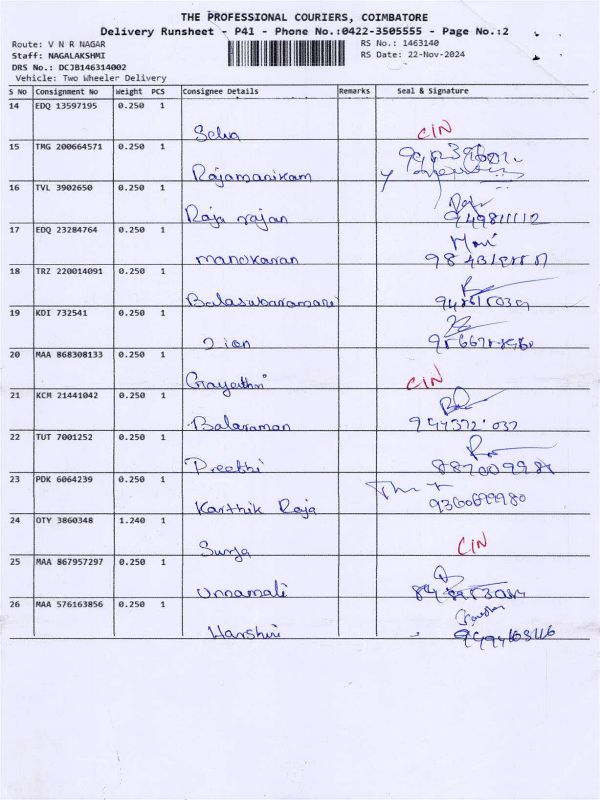 THE PROFESSIONAL COURIERS, COIMBATORE
Delivery Runsheet - P41 - Phone No.:0422-3505555 - Page No.:2
Route: V N R NAGAR RS No.: 1463140
Staff: NAGALAKSHMI RS Date: 22-Nov-2024
DRS No.: DCJB146314002
Vehicle: Two Wheeler Delivery
S No Consignment No Weight PCS Consignee Details Remarks Seal & Signature
14 EDQ 13597195 0.250 1
CIN
15 TMG 200664571 0.250 1
Rajamanikam
16 TVL 3902650 0.250 1
Raja rajan 949811112
17 EDQ 23284764 0.250 1
manokaran
18 TRZ 220014091 0.250 1
19 KDI 732541 0.250 1
20 MAA 868308133 0.250 1
Gayathri CIN
21 KCM 21441042 0.250 1
Balaraman
22 TUT 7001252 0.250 1
Preethi
23 PDK 6064239 0.250 1
Karthik Raja 9360699980
24 OTY 3860348 1.240 1
Surya CIN
25 MAA 867957297 0.250 1
unnamali
26 MAA 576163856 0.250 1
Harshini